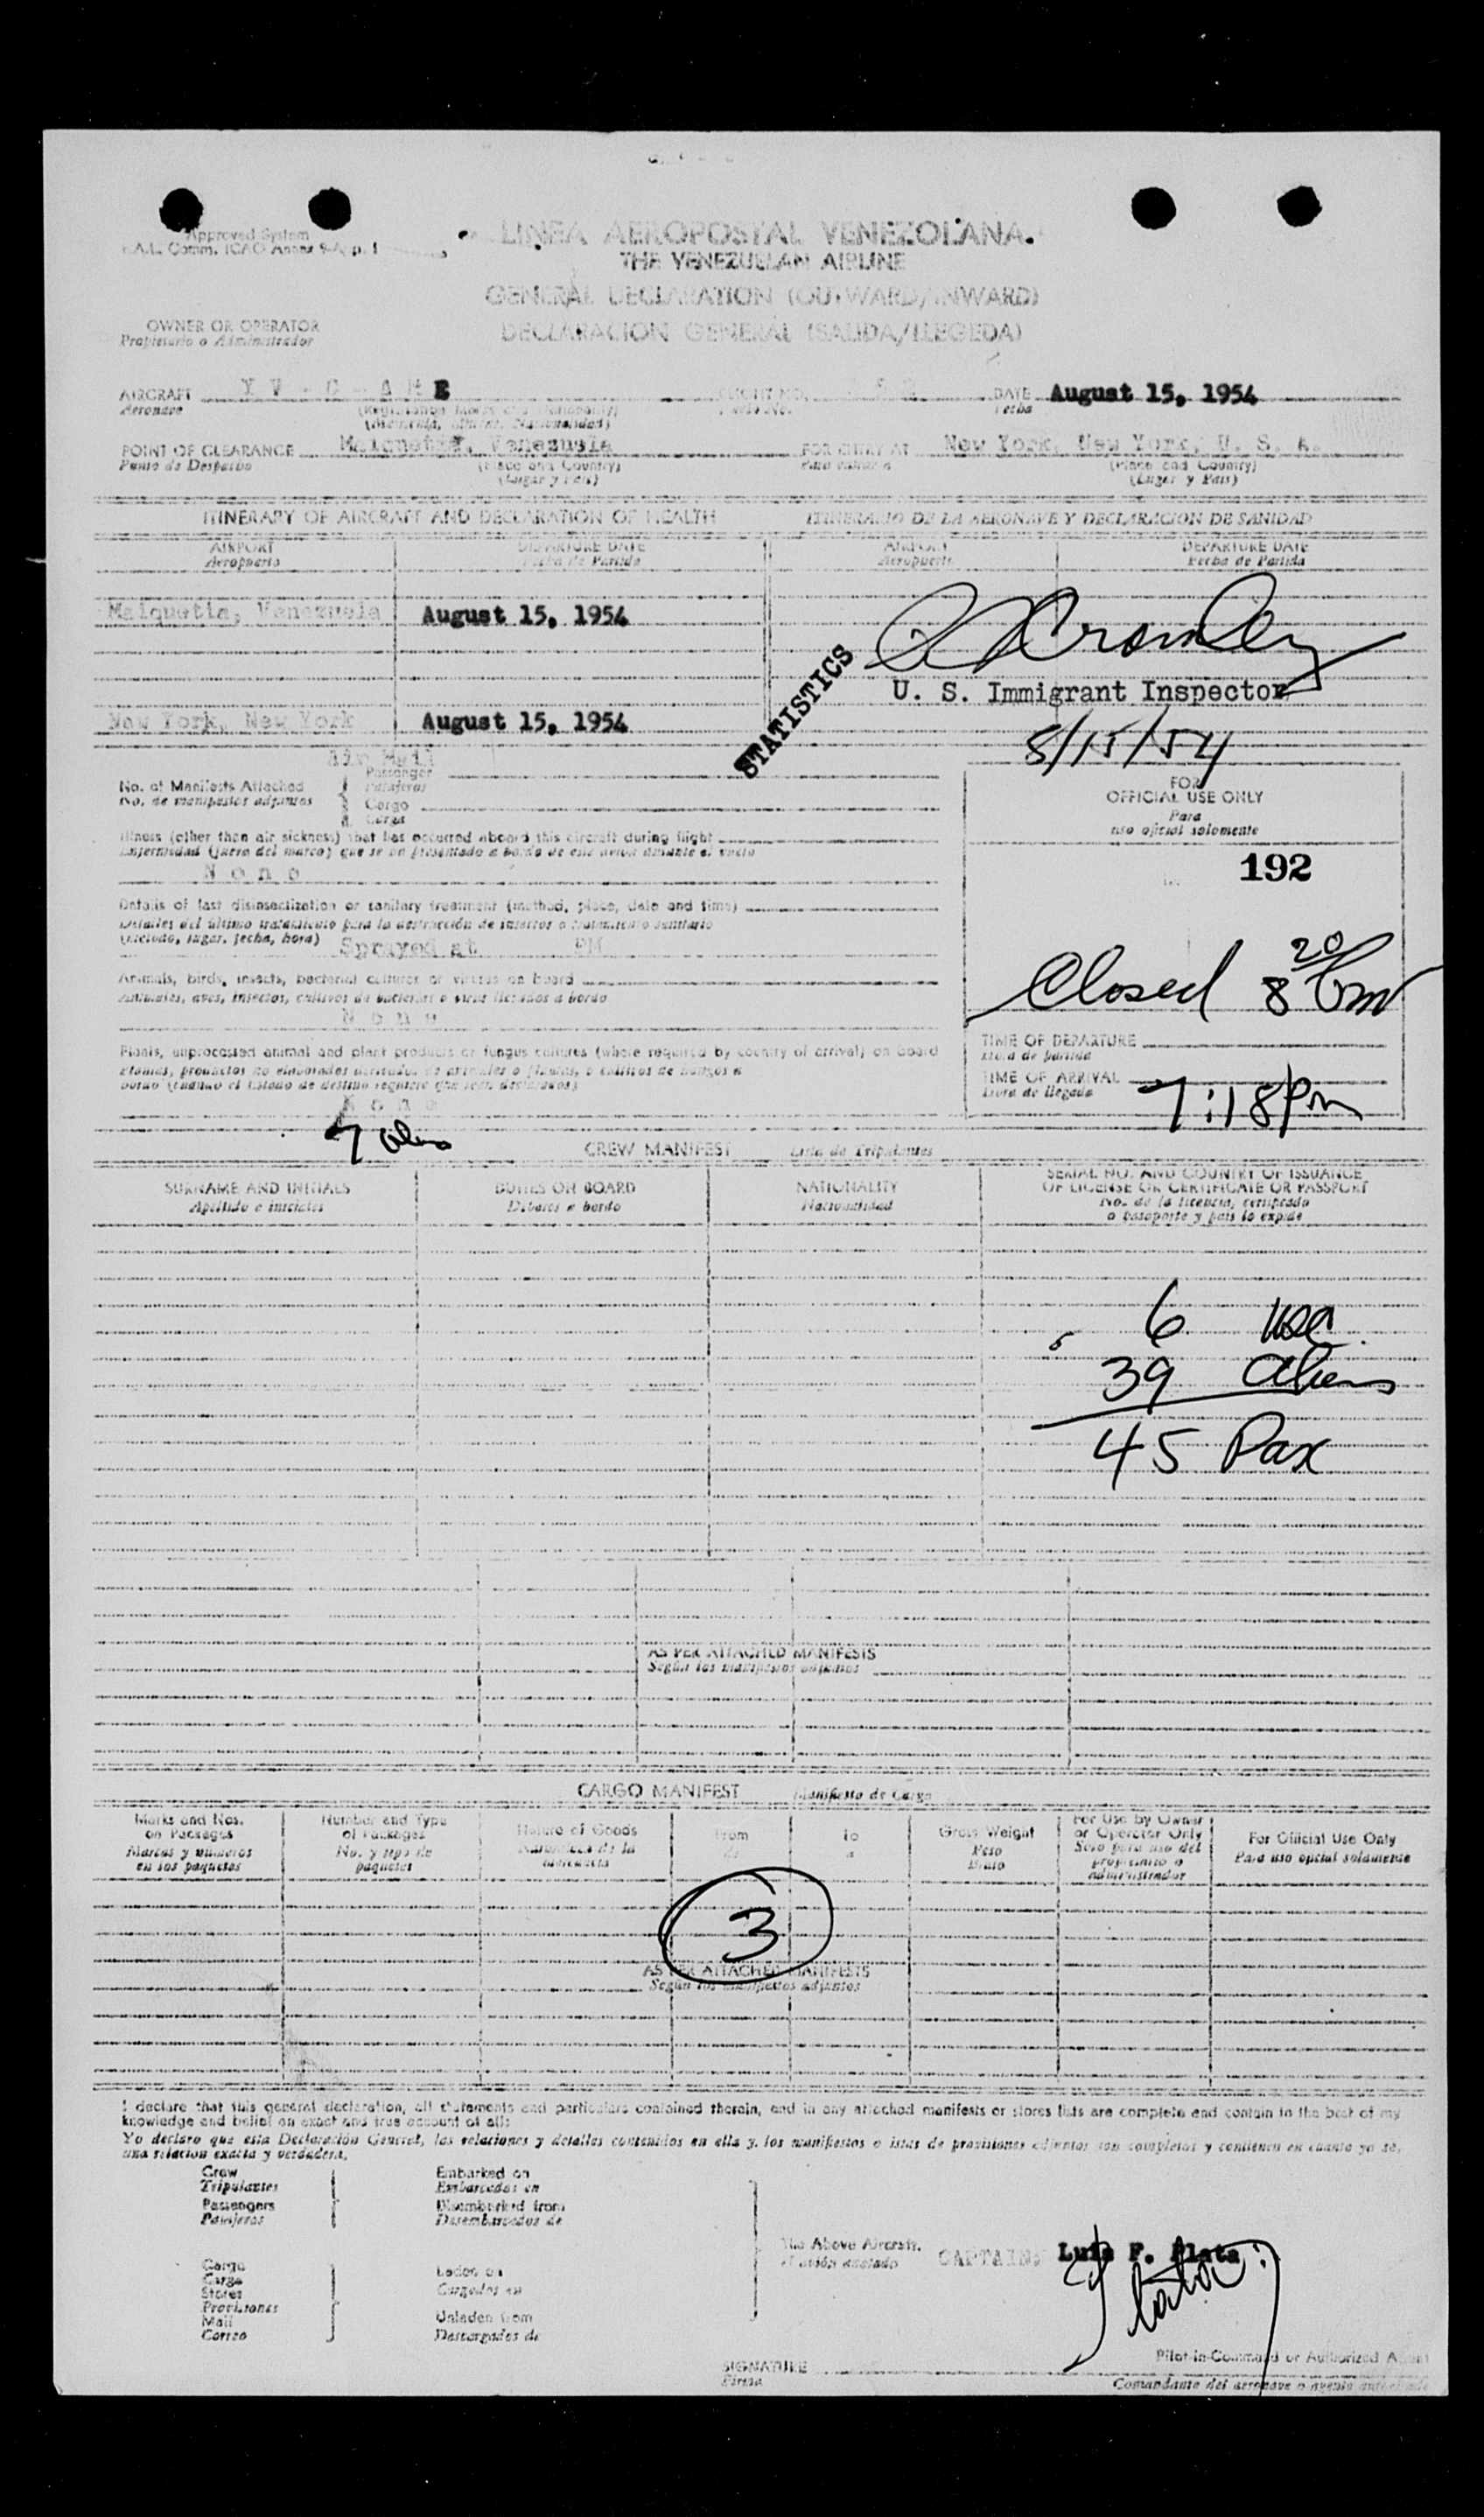 Approved System
F.A.L. Comm. ICAO Annex 9-A, p. 1
LINEA AEROPOSTAL VENEZOLANA.
THE VENEZUELAN AIRLINE
GENERAL DECLARATION (OUTWARD/INWARD)
DECLARACION GENERAL (SALIDA/LLEGEDA)
OWNER OR OPERATOR
Propietario o Administrador
AIRCRAFT Y V - C - A M E FLIGHT NO. DATE August 15, 1954
Aeronave Fecha
(Registration Marks and Nationality)
POINT OF CLEARANCE Maiquetia, Venezuela FOR ENTRY AT New York, New York, U. S. A.
Punto de Despacho (Place and Country) (Place and Country)
(Lugar y País) (Lugar y País)
ITINERARY OF AIRCRAFT AND DECLARATION OF HEALTH ITINERARIO DE LA AERONAVE Y DECLARACION DE SANIDAD
AIRPORT DEPARTURE DATE AIRPORT DEPARTURE DATE
Aeropuerto Fecha de Partida Aeropuerto Fecha de Partida
Maiquetia, Venezuela August 15, 1954
STATISTICS
Cromley
U. S. Immigrant Inspector
New York, New York August 15, 1954
8/15/54
Air Mail
No. of Manifests Attached Passenger
No. de manifiestos adjuntos Pasajeros
Cargo
Carga
FOR
OFFICIAL USE ONLY
Para
uso oficial solamente
192
Illness (other than air sickness) that has occurred aboard this aircraft during flight
Enfermedad (fuera del mareo) que se ha presentado a bordo de este avion durante el vuelo
None
Details of last disinsectization or sanitary treatment (method, place, date and time)
Detalles del último tratamiento para la destrucción de insectos o tratamiento sanitario
(método, lugar, fecha, hora) Sprayed at PM
Closed 8 20 pm
Animals, birds, insects, bacterial cultures or viruses on board
Animales, aves, insectos, cultivos de bacterias o virus llevados a bordo
None
TIME OF DEPARTURE
Hora de partida
TIME OF ARRIVAL 7:18 Pm
Hora de llegada
Plants, unprocessed animal and plant products or fungus cultures (where required by country of arrival) on board
bordo (cuando el Estado de destino requiere que sean declarados)
None
7 aliens
CREW MANIFEST Lista de Tripulantes
SURNAME AND INITIALS DUTIES ON BOARD NATIONALITY SERIAL NO. AND COUNTRY OF ISSUANCE
OF LICENSE OR CERTIFICATE OR PASSPORT
Apellido e iniciales Deberes a bordo Nacionalidad No. de la licencia, certificado
o pasaporte y país lo expide
6 usc
39 aliens
45 Pax
AS PER ATTACHED MANIFESTS
Según los manifiestos adjuntos
CARGO MANIFEST Manifiesto de Carga
Marks and Nos. on Packages Number and Type of Packages Nature of Goods From To Gross Weight For Use by Owner or Operator Only For Official Use Only
Marcas y números en los paquetes No. y tipo de paquetes Naturaleza de la mercancía De a Peso Bruto Solo para uso del propietario o administrador Para uso oficial solamente
3
AS PER ATTACHED MANIFESTS
Según los manifiestos adjuntos
I declare that this general declaration, all statements and particulars contained therein, and in any attached manifests or stores lists are complete and contain to the best of my
knowledge and belief an exact and true account of all:
Yo declaro que esta Declaración General, las relaciones y detalles contenidos en ella y los manifiestos o listas de provisiones adjuntos son completos y contienen en cuanto yo sé,
una relacion exacta y verdadera.
Crew Embarked on
Tripulantes Embarcados en
Passengers Disembarked from
Pasajeros Desembarcados de
The Above Aircraft. CAPTAIN: Luis F. Plata
el avión anotado
Plata
Cargo Laden on
Carga Cargados en
Stores
Provisiones
Mail Unladen from
Correo Descargados de
SIGNATURE Pilot-in-Command or Authorized Agent
Firma Comandante del aeronave o agente autorizado